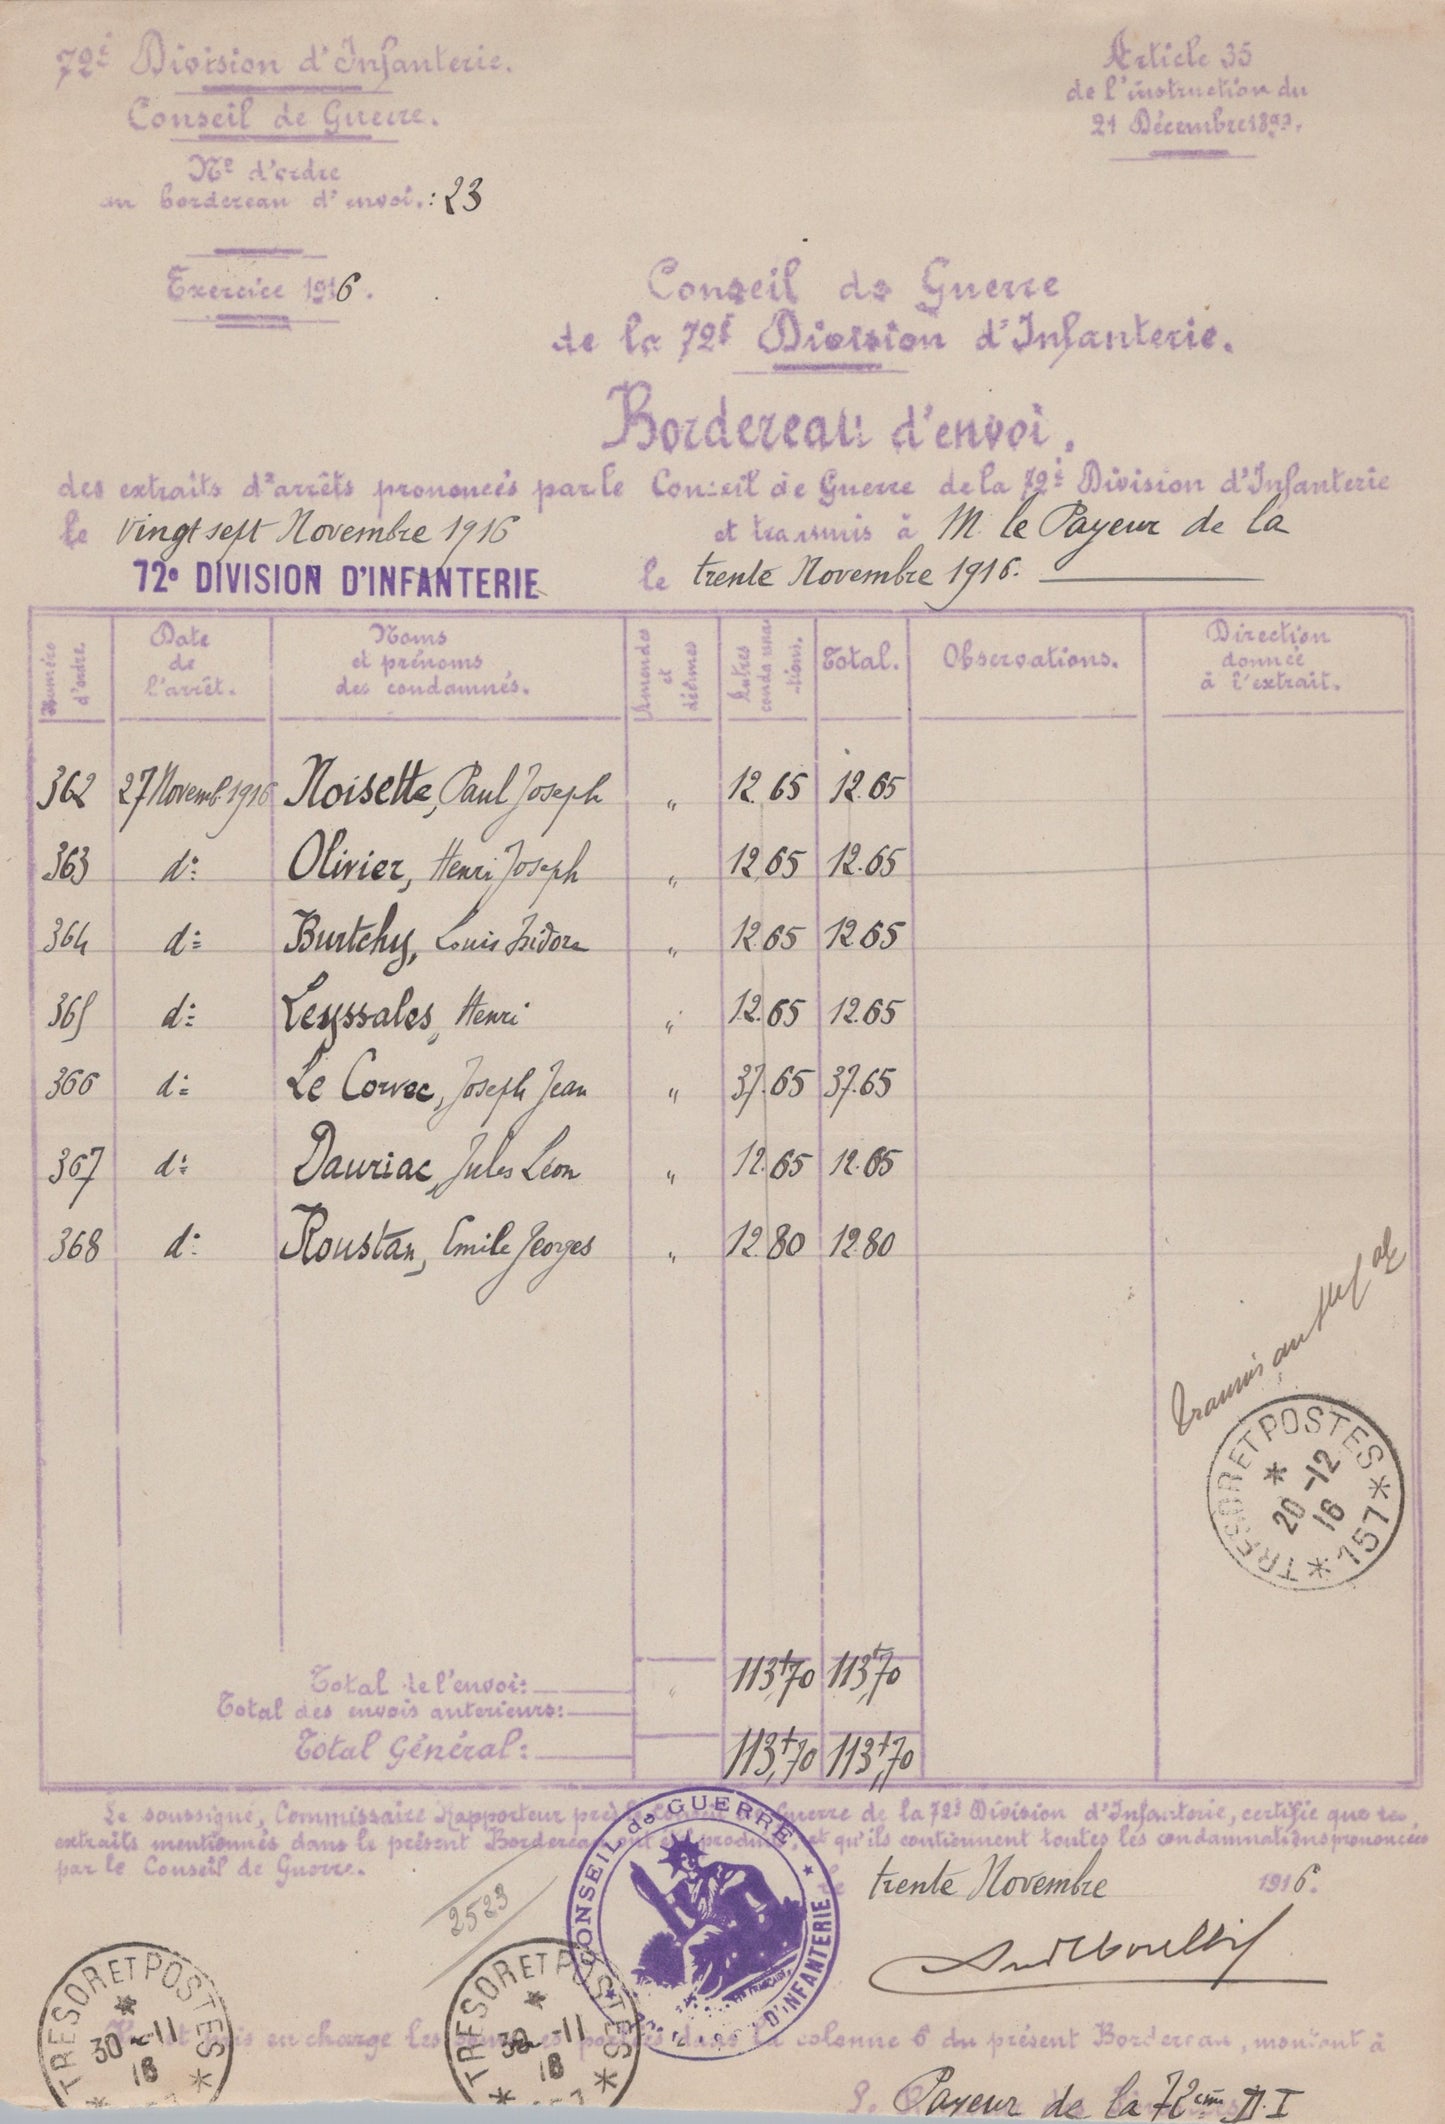 72e Division d'Infanterie.
Conseil de Guerre.
No d'ordre
du bordereau d'envoi.: 23
Exercice 1916.
Article 35
de l'instruction du
21 Décembre 1893.
Conseil de Guerre
de la 72e Division d'Infanterie.
Bordereau d'envoi.
des extraits d'arrêts prononcés par le Conseil de Guerre de la 72e Division d'Infanterie
le vingt sept Novembre 1916 et transmis à M. le Payeur de la
72e DIVISION D'INFANTERIE le trente Novembre 1916.
Numéro d'ordre. Date de l'arrêt. Noms et prénoms des condamnés. Amendes et décimes Autres condamnations. Total. Observations. Direction donnée à l'extrait.
362 27 Novemb. 1916 Noisette, Paul Joseph " 12.65 12.65
363 d°: Olivier, Henri Joseph " 12.65 12.65
364 d°: Burtchy, Louis Isidore " 12.65 12.65
365 d°: Leyssales, Henri " 12.65 12.65
366 d°: Le Corvec, Joseph Jean " 37.65 37.65
367 d°: Dauriac, Jules Léon " 12.65 12.65
368 d°: Roustan, Emile Georges " 12.80 12.80
transmis au
TRESOR ET POSTES * 157 *
20 -12
16
Total de l'envoi: " 113,70 113,70
Total des envois anterieurs:
Total Général: 113,70 113,70
Le soussigné, Commissaire Rapporteur près le Conseil de Guerre de la 72e Division d'Infanterie, certifie que les
extraits mentionnés dans le présent Bordereau ont été produits, et qu'ils contiennent toutes les condamnations prononcées
par le Conseil de Guerre.
le trente Novembre 1916.
CONSEIL de GUERRE
D'INFANTERIE
2523
TRESOR ET POSTES
30 -11
16
TRESOR ET POSTES
30 -11
16
en charge les portées dans la colonne 6 du présent Bordereau, montant à
Payeur de la 72ème D.I